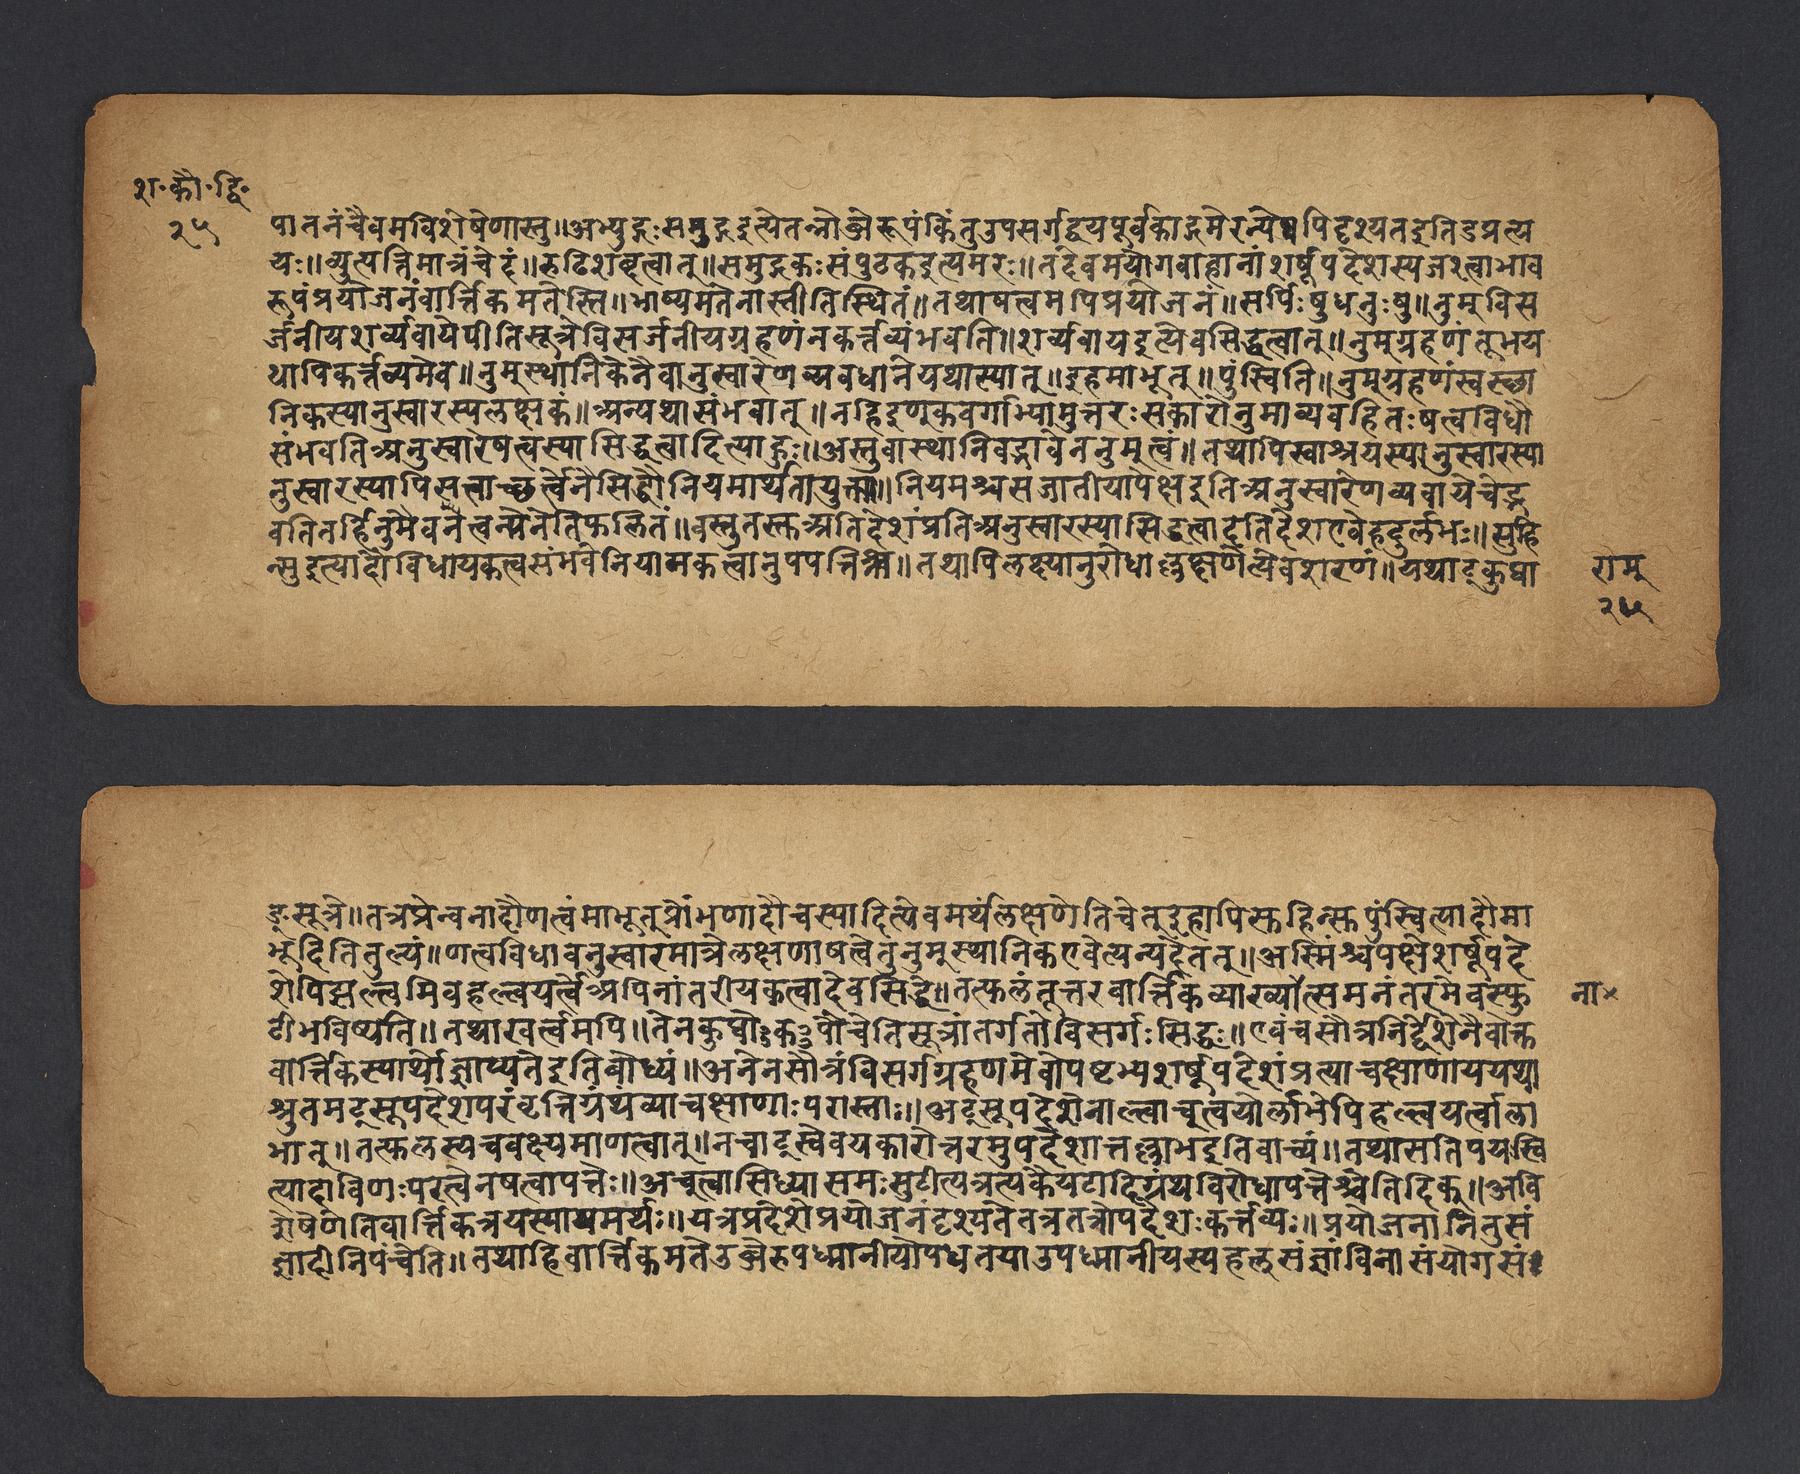 श॰कौ॰द्वि॰
२५
पातनंचैवमविशेषेणास्तु॥अभ्युद्गःसमुद्गइत्येतन्नोब्जेरूपंकिंतुउपसर्गद्वयपूर्वकाद्गमेरन्येष्वपिदृश्यतइतिडप्रत्य
यः॥व्युत्पत्तिमात्रंचेदं॥रुढिशब्दत्वात्॥समुद्गकःसंपुटकइत्यमरः॥तदेवमयोगवाहानांशर्षूपदेशस्यजश्त्वाभाव
रूपंप्रयोजनंवार्त्तिकमतेस्ति॥भाष्यमतेनास्तीतिस्थितं॥तथाषत्वमपिप्रयोजनं॥सर्पिःषुधनुःषु॥नुम्विस
र्जनीयशर्व्यवायेपीतिसूत्रेविसर्जनीयग्रहणंनकर्त्तव्यंभवति॥शर्व्यवायइत्येवसिद्धत्वात्॥नुम्ग्रहणंतूभय
थापिकर्त्तव्यमेव॥नुम्स्थानिकेनैवानुस्वारेणव्यवधानेयथास्यात्॥इहमाभूत्॥पुंस्विति॥नुम्ग्रहणंस्वस्छा
निकस्यानुस्वारस्यलक्षकं॥अन्यथासंभवात्॥नहिइण्कवर्गाभ्यामुत्तरःसकारोनुमाव्यवहितःषत्वविधौ
संभवतिअनुस्वारेषत्वस्यासिद्धत्वादित्याहुः॥अस्तुवास्थानिवद्भावेननुम्त्वं॥तथापिस्वाश्रयस्यानुस्वारस्या
नुस्वारस्यापिसत्वाच्छर्त्वेनैसिद्धौनियमार्थतायुक्ता॥नियमश्चसजातीयापेक्षइतिअनुस्वारेणव्यवायेचेद्भ
वतितर्हिनुमैवनत्वन्येनेतिफलितं॥वस्तुतस्तुअतिदेशंप्रतिअनुस्वारस्यासिद्धत्वादतिदेशएवेहदुर्लभः॥सुहि
न्सुइत्यादौविधायकत्वसंभवेनियामकत्वानुपपत्तिश्च॥तथापिलक्ष्यानुरोधाल्लक्षणेत्येवशरणं॥यथाट्कुप्वा
रामः
२५
ङ्सूत्रे॥तत्रप्रेन्वनादौणत्वंमाभूत्प्रोंभणादौचस्यादित्येवमर्थंलक्षणेतिचेत्इहापिस्तहिन्स्तपुंस्वित्यादौमा
भूदितितुल्यं॥णत्वविधावनुस्वारमात्रेलक्षणाषत्वेतुनुम्स्थानिकएवेत्यन्यदेतत्॥अस्मिंश्चपक्षेशर्षूपदे
शेपिझल्त्वमिवहल्त्वयर्त्वेअपिनांतरीयकत्वादेवसिद्धे॥तत्फलंतूत्तरवार्त्तिकव्याख्योत्समनंतरमेवस्फु
ना×
टीभविष्यति॥तथाखर्त्वमपि॥तेनकुप्वोःकःपौचेतिसूत्रांतर्गतोविसर्गःसिद्धः॥एवंचसौत्रनिर्द्देशेनैवोक्त
वार्त्तिकस्यार्थोज्ञाप्यतेइतिबोध्यं॥अनेनसौत्रंविसर्गग्रहणमेवोपष्टभ्यशर्षूपदेशंप्रत्याचक्षाणाययथा
श्रुतमट्सूपदेशपरंवृत्तिग्रंथव्याचक्षाणाःपरास्ताः॥अट्सूपदेशेनाल्त्वाच्त्वयोर्लाभेपिहल्त्वयर्त्वाला
भात्॥तत्फलस्यचवक्ष्यमाणत्वात्॥नचाट्स्वेवयकारोत्तरमुपदेशात्तल्लाभइतिवाच्यं॥तथासतिपयस्वि
त्यादाविणःपरत्वेनषत्वापत्तेः॥अच्त्वासिध्यासमःसुटीत्यत्रत्यकैयटादिग्रंथविरोधापत्तेश्चेतिदिक्॥अवि
शेषेणेतिवार्त्तिकत्रयस्यायमर्थः॥यत्रप्रदेशेप्रयोजनंदृश्यतेतत्रतत्रोपदेशःकर्त्तव्यः॥प्रयोजनानितुसं
ज्ञादीनिपंचेति॥तथाहिवार्त्तिकमतेउब्जेरुपध्मानीयोपधतयाउपध्मानीयस्यहल्संज्ञांविनासंयोगसं